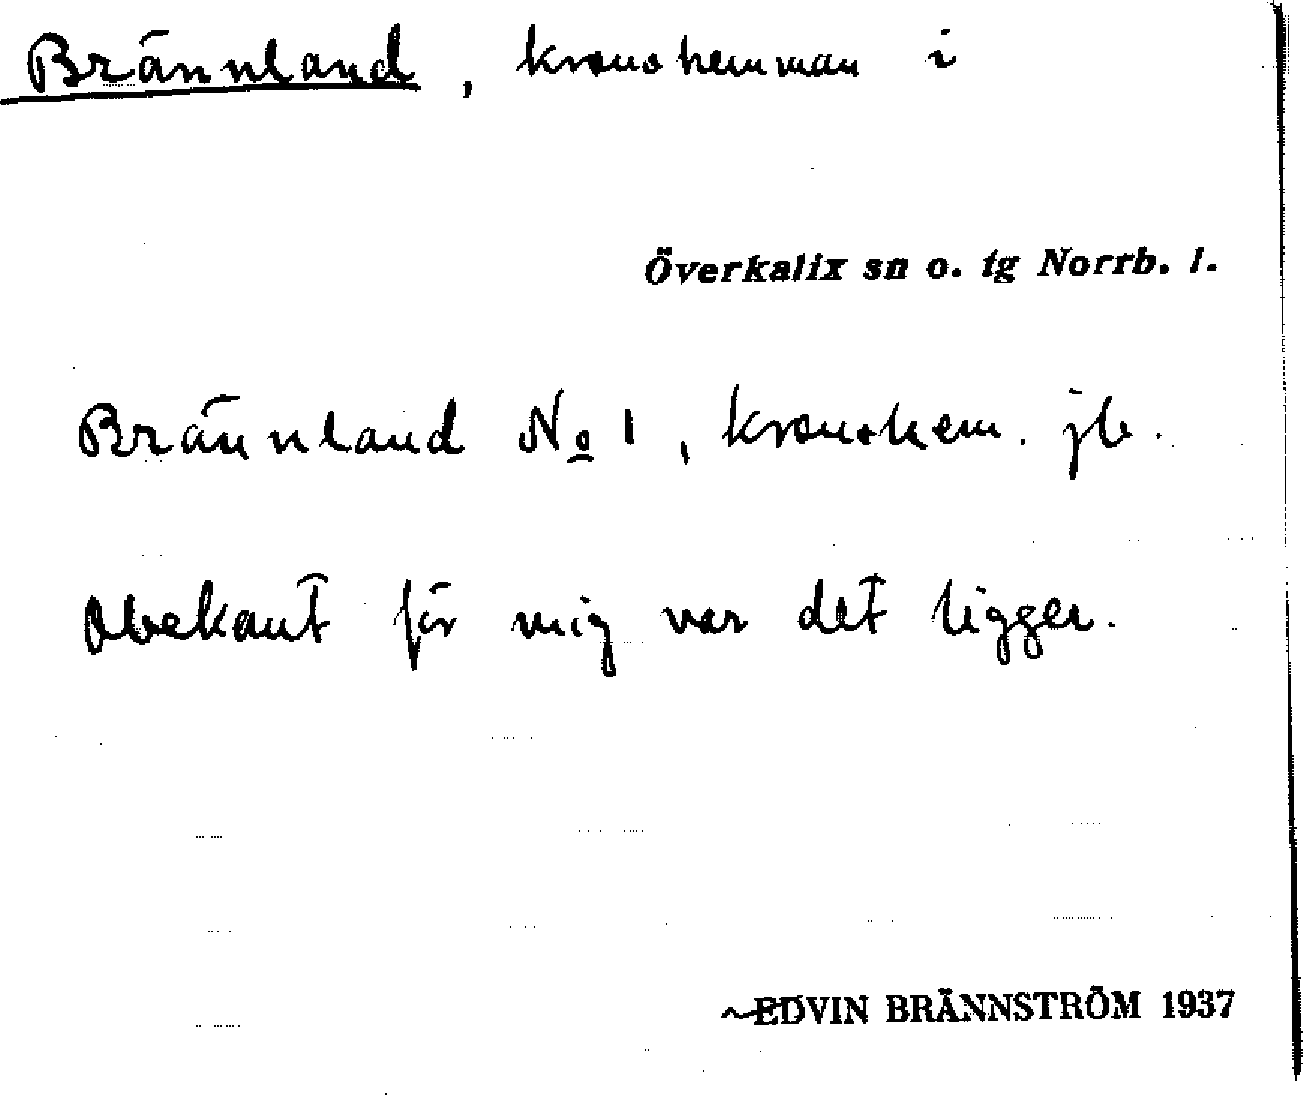 Brännland, kronohemman i
Överkalix sn o. tg Norrb. l.
Brännland No 1, kronohem. jb.
Obekant för mig var det ligger.
EDVIN BRÄNNSTRÖM 1937